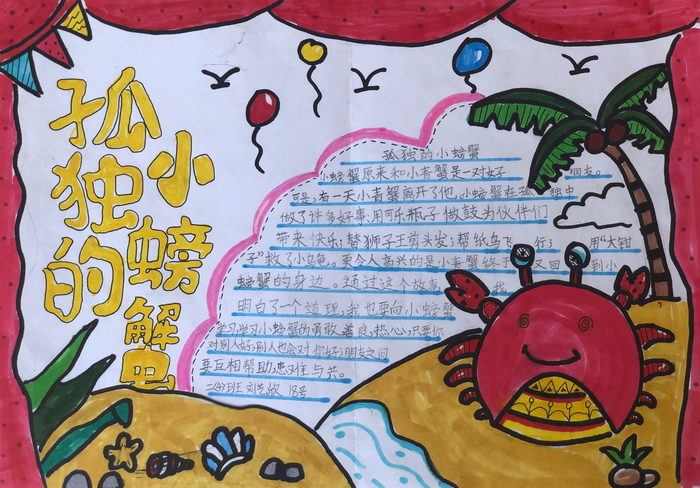 孤独的
小螃蟹
孤独的小螃蟹
小螃蟹原来和小青蟹是一对好朋友。
可是,有一天小青蟹离开了他,小螃蟹在孤 独中
做了许多好事,用可乐瓶子做鼓为伙伴们
带来快乐;替狮子王剪头发;帮纸鸟飞 行; 用"大钳
子"救了小 龟。更令人高兴的是小青蟹终于 又回 到小
螃蟹的身边。通过这个故事 我
明白了一个道理:我也要向小螃蟹
学习学习小螃蟹的勇敢、善良、热心,只要你
对别人好,别人也会对你好;朋友之间
要互相帮助,患难与共。
二 班 刘 18号